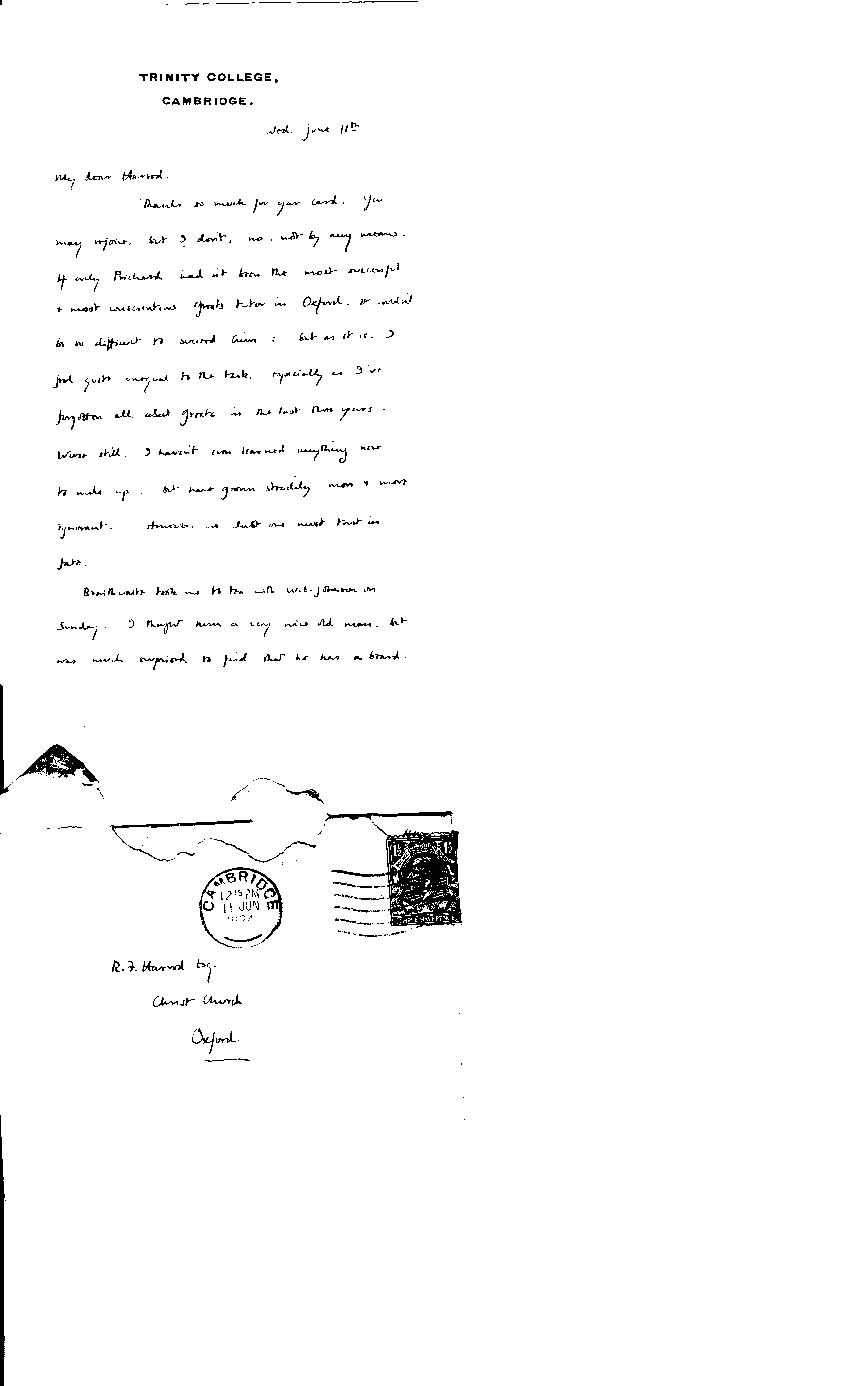 TRINITY COLLEGE,
CAMBRIDGE.
Wed. June 11th
My dear Harrod.
Thanks so much for your card. You
may rejoice, but I don't, no, not by any means.
If only Prichard had not been the most successful
& most conscientious Greats tutor in Oxford, it wouldn't
be so difficult to succeed him: but as it is, I
feel quite unequal to the task, especially as I've
forgotten all about Greats in the last three years.
Worse still, I haven't even learned anything new
to make up, but have grown steadily more & more
ignorant. However, one must trust in
fate.
Braithwaite took me to tea with W.E. Johnson on
Sunday. I thought him a very nice old man, but
was much surprised to find that he has a beard.
CAMBRIDGE
12 15 PM
11 JUN
R. F. Harrod Esq.
Christ Church
Oxford.